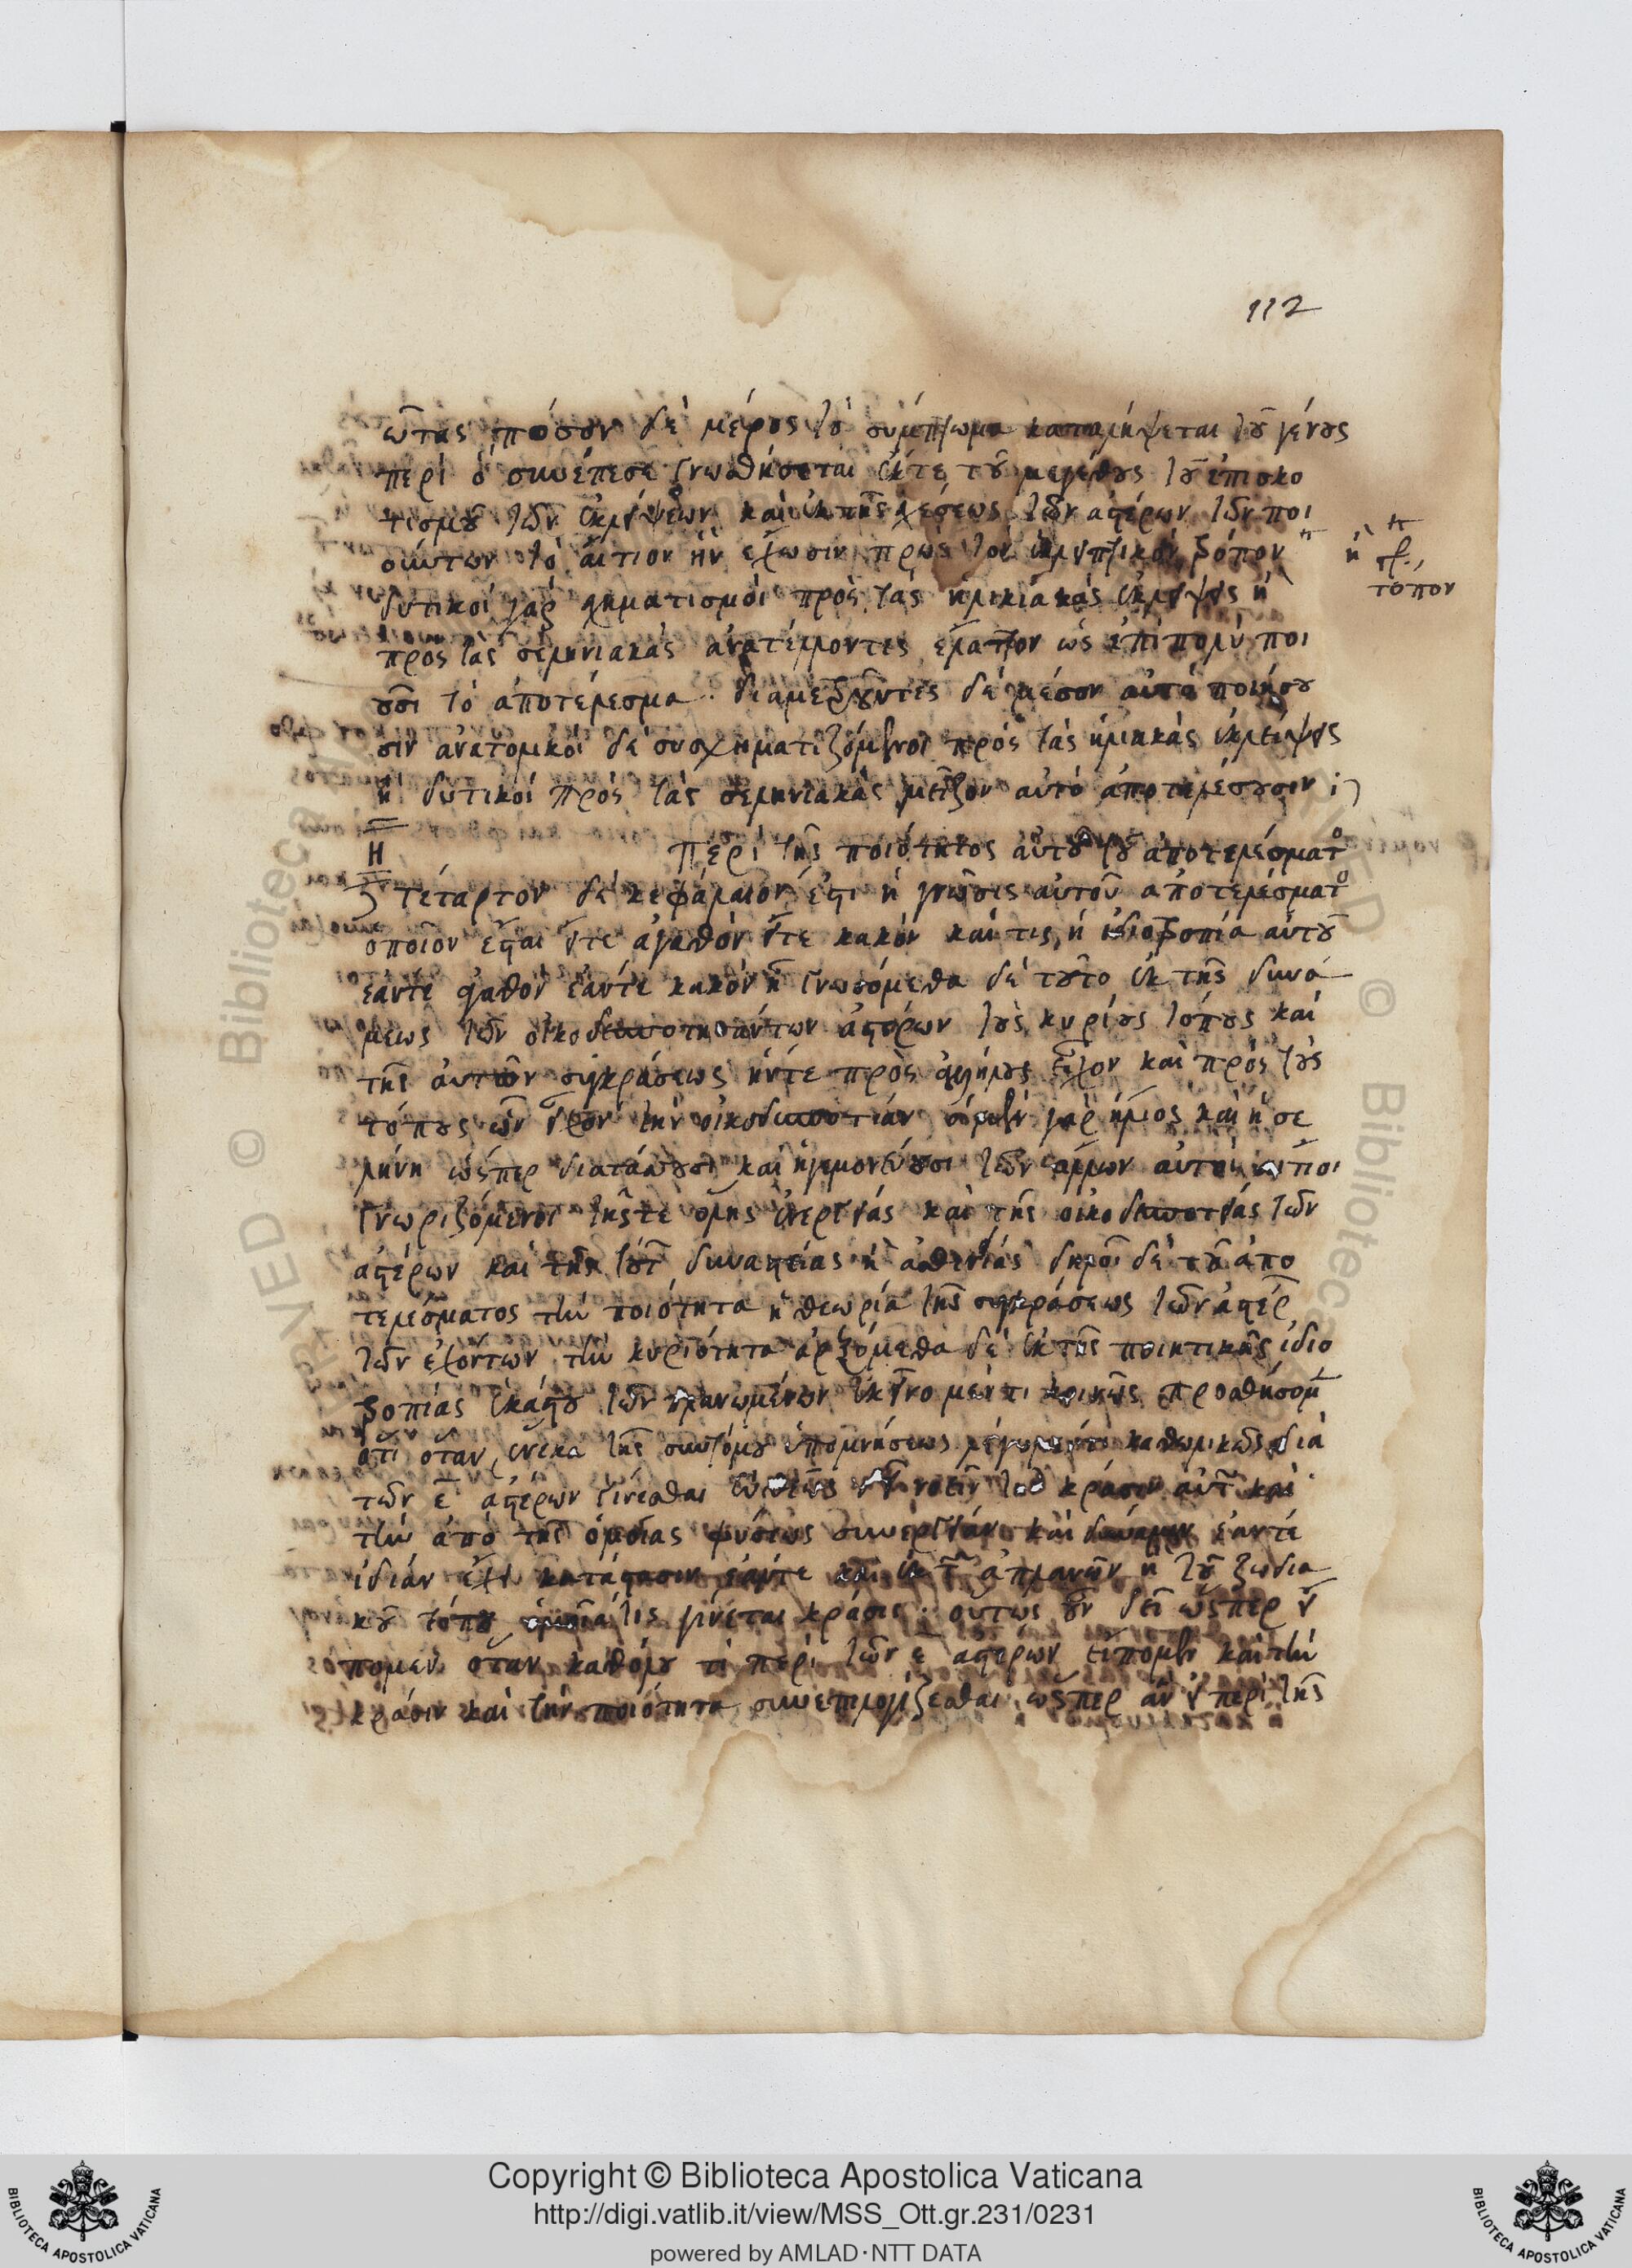 112
ῶντας πόσον δὲ μέρος τὸ σύμπτωμα καταλήψεται τοῦ γένους
περὶ ὃ συνέπεσε γνωσθήσεται ἔκτε τοῦ μεγέθους τοῦ ἐπισκο
τισμοῦ τῶν ἐκλείψεων καὶ ἐκ τῆς σχέσεως τῶν ἀστέρων τῶν ποι
ούντων τὸ αἴτιον ἣν ἔχωσιν πρὸς τὸν ἐκλειπτικὸν τρόπον
ἢ γρ. τόπον
δυτικοί γὰρ σχηματισμοὶ πρὸς τὰς ἡλικιακὰς ἐκλείψεις ἢ
πρὸς τὰς σεληνιακὰς ἀνατέλλοντες ἔλαττον ὡς ἐπιπολὺ ποι
οῦσι τὸ ἀποτέλεσμα. διαμετροῦντες δὲ μέσον αὐτὸ ποιήσου
σιν ἀνατολικοὶ δὲ συσχηματιζόμενοι πρὸς τὰς ἡλιακὰς ἐκλείψεις
ἢ δυτικοί πρὸς τὰς σεληνιακὰς μεῖζον αὐτὸ ἀποτελέσουσιν
Η
Περὶ τῆς ποιότητος αὐτοῦ τοῦ ἀποτελέσματο
Τέταρτον δὲ κεφάλαιον ἐστι ἡ γνῶσις αὐτοῦ ἀποτελέσματο
ὁποῖον ἔσται εἴτε ἀγαθὸν εἴτε κακὸν καὶ τις ἡ ἰδιοτροπία αὐτοῦ
ἐάντε ἀγαθὸν ἐάντε κακὸν ᾖ γνωσόμεθα δὲ τοῦτο ἐκ τῆς δυνά
μεως τῶν οἰκοδεσποτησάντων ἀστέρων τοὺς κυρίους τόπους καὶ
τῆς αὐτῶν συγκράσεως ἥντε πρὸς ἀλλήλους ἔχον καὶ πρὸς τοὺς
τόπους ὧν εὗρον τὴν οἰκοδεσποτίαν ὁ μὲν γὰρ ἥλιος καὶ ἡ σε
λήνη ὥσπερ διατάττουσι καὶ ἡγεμονεύουσι τῶν ἄλλων αὐτοὶ
γνωριζόμενοι τῆς τε ὅλης ἐνεργείας καὶ τῆς οἰκοδεσποτείας τῶν
ἀστέρων καὶ τῆς δυναστείας ἢ ἀσθενείας δηλοῖ δὲ τοῦ ἀπο
τελέσματος τὴν ποιότητα ἡ θεωρία τῆς συγκράσεως τῶν ἀστέρ
τῶν ἐχόντων τὴν κυριότητα ἀρξόμεθα δὲ ἐκ τῆς ποιητικῆς ἰδιο
τροπίας ἑκάστου τῶν πλανωμένων ἐκεῖνο μέντι κοινῶς προσθήσομ
ὅτι ὅταν ἕνεκα τῆς συντόμου ὑπομνήσεως λέγωμέν τι καθολικῶς διὰ
τῶν ε ἀστέρων γίνεσθαι εὐθέως κρᾶσιν αὐτ καὶ
τὴν ἀπὸ τῆς ὁμοίας φύσεως συνεργείαν καὶ δύναμιν ἐαντέ
ἰδίαν ἔχει κατάστασιν ἐάντε καὶ ἐκ τ ἀπλανῶν ἢ τοῦ ζωδια
κοῦ τόπου τις γίνεται κρᾶσις· οὕτως οὖν δεῖ ὥσπερ εἴ
πομεν ὅταν καθόλου τι περὶ τῶν ε ἀστέρων εἴπομεν καὶ τὴν
κρᾶσιν καὶ τὴν ποιότητα συνεπιλογίζεσθαι ὥσπερ ἂν εἰ περὶ τῆς
Copyright © Biblioteca Apostolica Vaticana
http://digi.vatlib.it/view/MSS_Ott.gr.231/0231
powered by AMLAD·NTT DATA